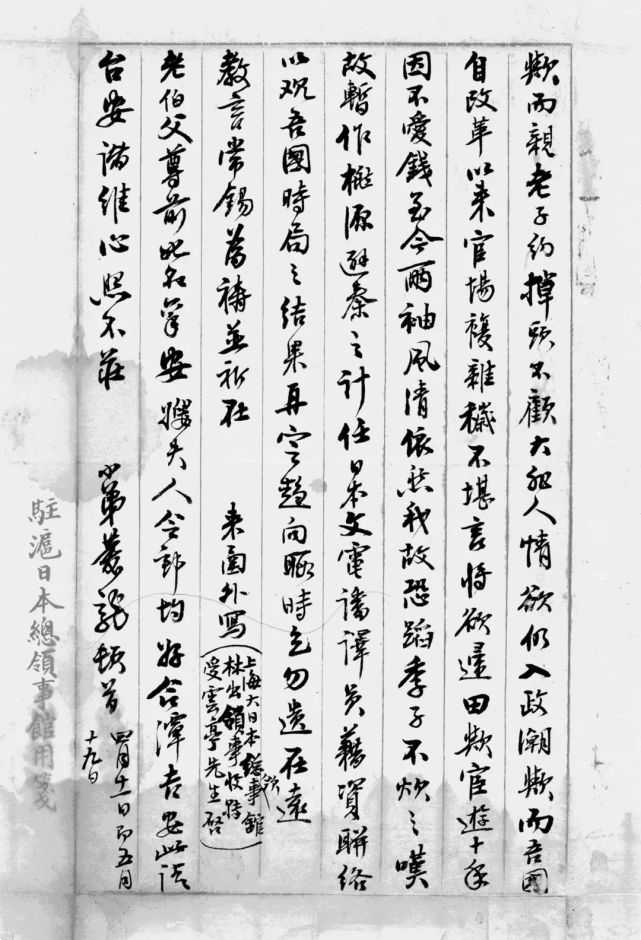 歟而親老子約掉頭不顧大非人情欲仍入政潮歟而吾國
自改革以來官場複雜穢不堪言將欲還田歟宦遊十年
因不愛錢至今兩袖風清依然我故恐蹈季子不炊之嘆
故暫作桃源避秦之計任日本文電譯員藉資聯絡
以观吾國時局之結果再定趨向暇時乞勿遺在遠
教言常錫為禱並祈在 來函外寫
上海大日本總領事館
林出領事收轉
受雲亭先生啓
老伯父尊前叱名筆安 嫂夫人令郎均好合潭吉安此請
台安諸維心照不莊
小弟 龍頓首
四月十一日即五月
十九日
駐滬日本總領事館用箋